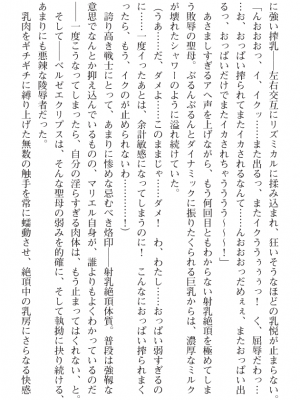 に強い搾乳――左右交互にリズミカルに揉み込まれ、狂いそうなほどの乳悦が止まらない。
「んおおおっ、イ、イクッ……また出るっ、またイクううぅぅっ！　く、屈辱だわっ…
…お、おっぱい搾られてまたイカされるなんて……んおおおだめぇぇ、またおっぱい出
るっ、おっぱいだけでまたイカされちゃううう〜〜〜〜！」
　あさましすぎるアヘ声を上げながら、もう何回目ともわからない射乳絶頂を極めてしま
う敗辱の聖母。ぶるんぶるんとダイナミックに振りたくられる巨乳からは、濃厚なミルク
が壊れたシャワーのように溢れ続けていた。
（うぁ……だ、ダメよ……このままじゃ……ダメ！　わ、わたし……おっぱい弱すぎるの
に……一度イったあとは、余計敏感になってしまうのに！　こんなにおっぱい搾られまく
ったら、もう、イクのが止められないわ…………！）
　誇り高き戦士にとって、あまりに惨めな忌むべき烙印――射乳絶頂体質。普段は強靱な
意思でなんとか抑え込んでいるものの、マリエル自身が、誰よりもよくわかっているのだ
――一度こうなってしまったら、自分の淫らすぎる肉体は、もう止まってはくれないと。
　そして――ベルゼクリプスは、そんな聖母の弱みを的確に、そして執拗に抉り続ける、
あまりにも悪辣な陵辱者だった。
　乳肉をギチギチに縛り上げた無数の触手を常に蠕動させ、絶頂中の乳房にさらなる快感